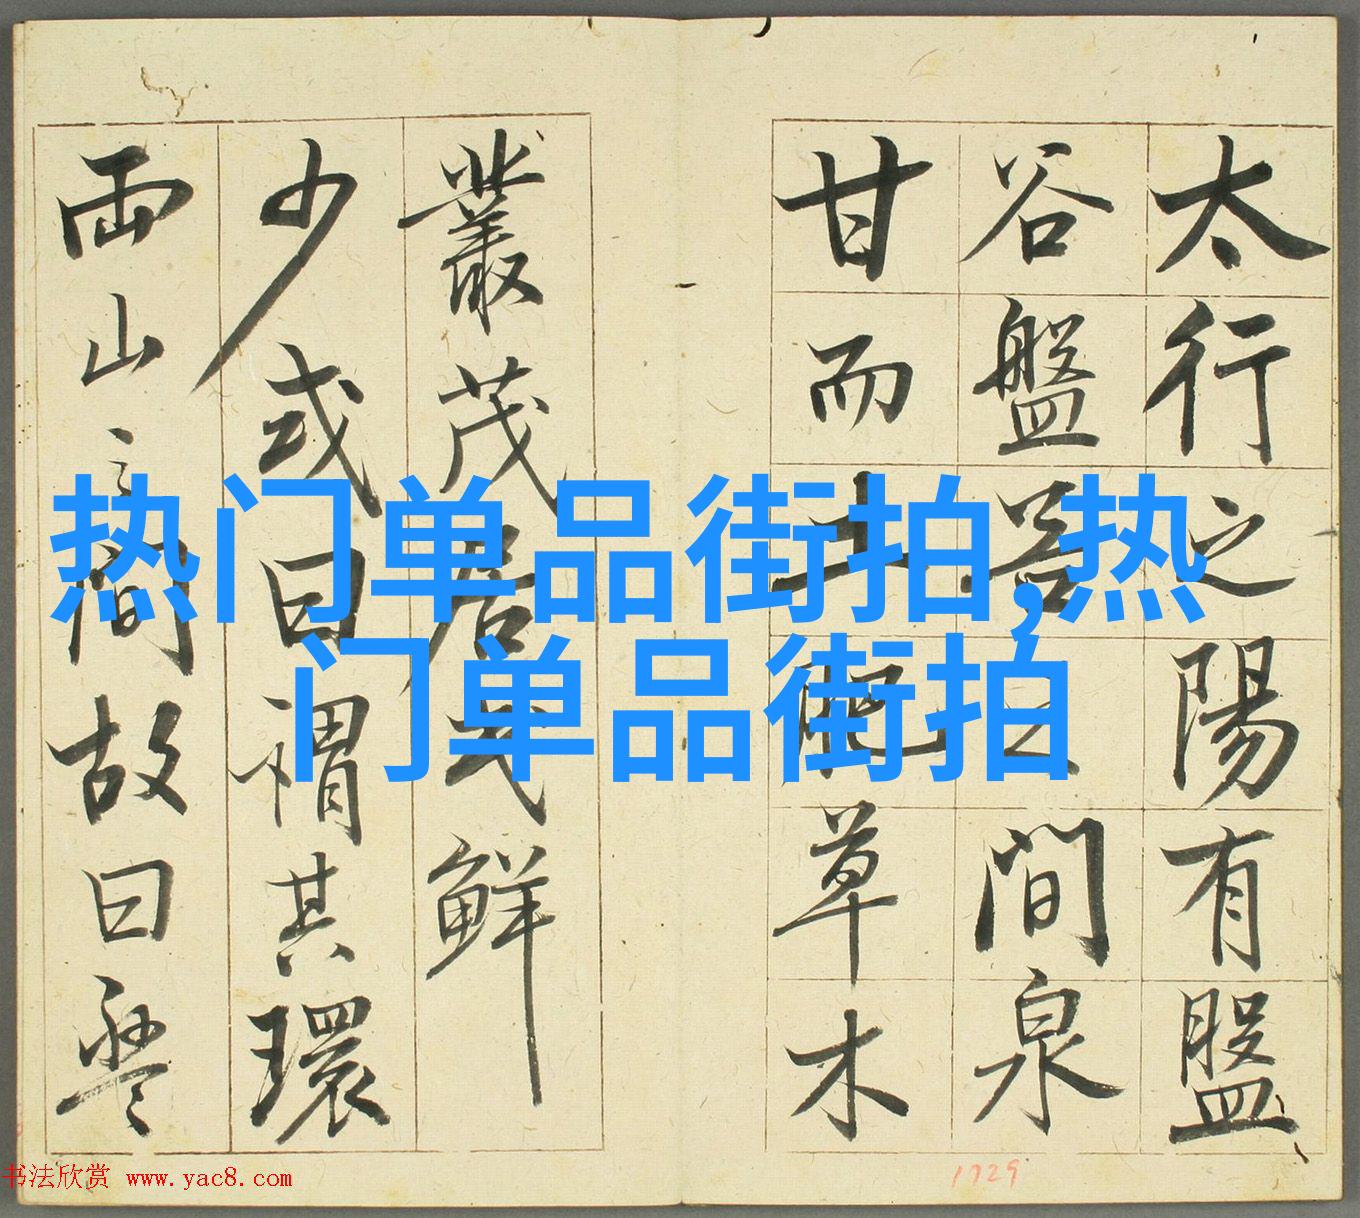 太行之陽有盤
谷盤谷之間泉
甘而土肥草木
叢茂居民鮮
少或曰謂其環
兩山之間故曰盤
热门单品街拍,热
门单品街拍
书法欣赏 www.yac8.com
1729